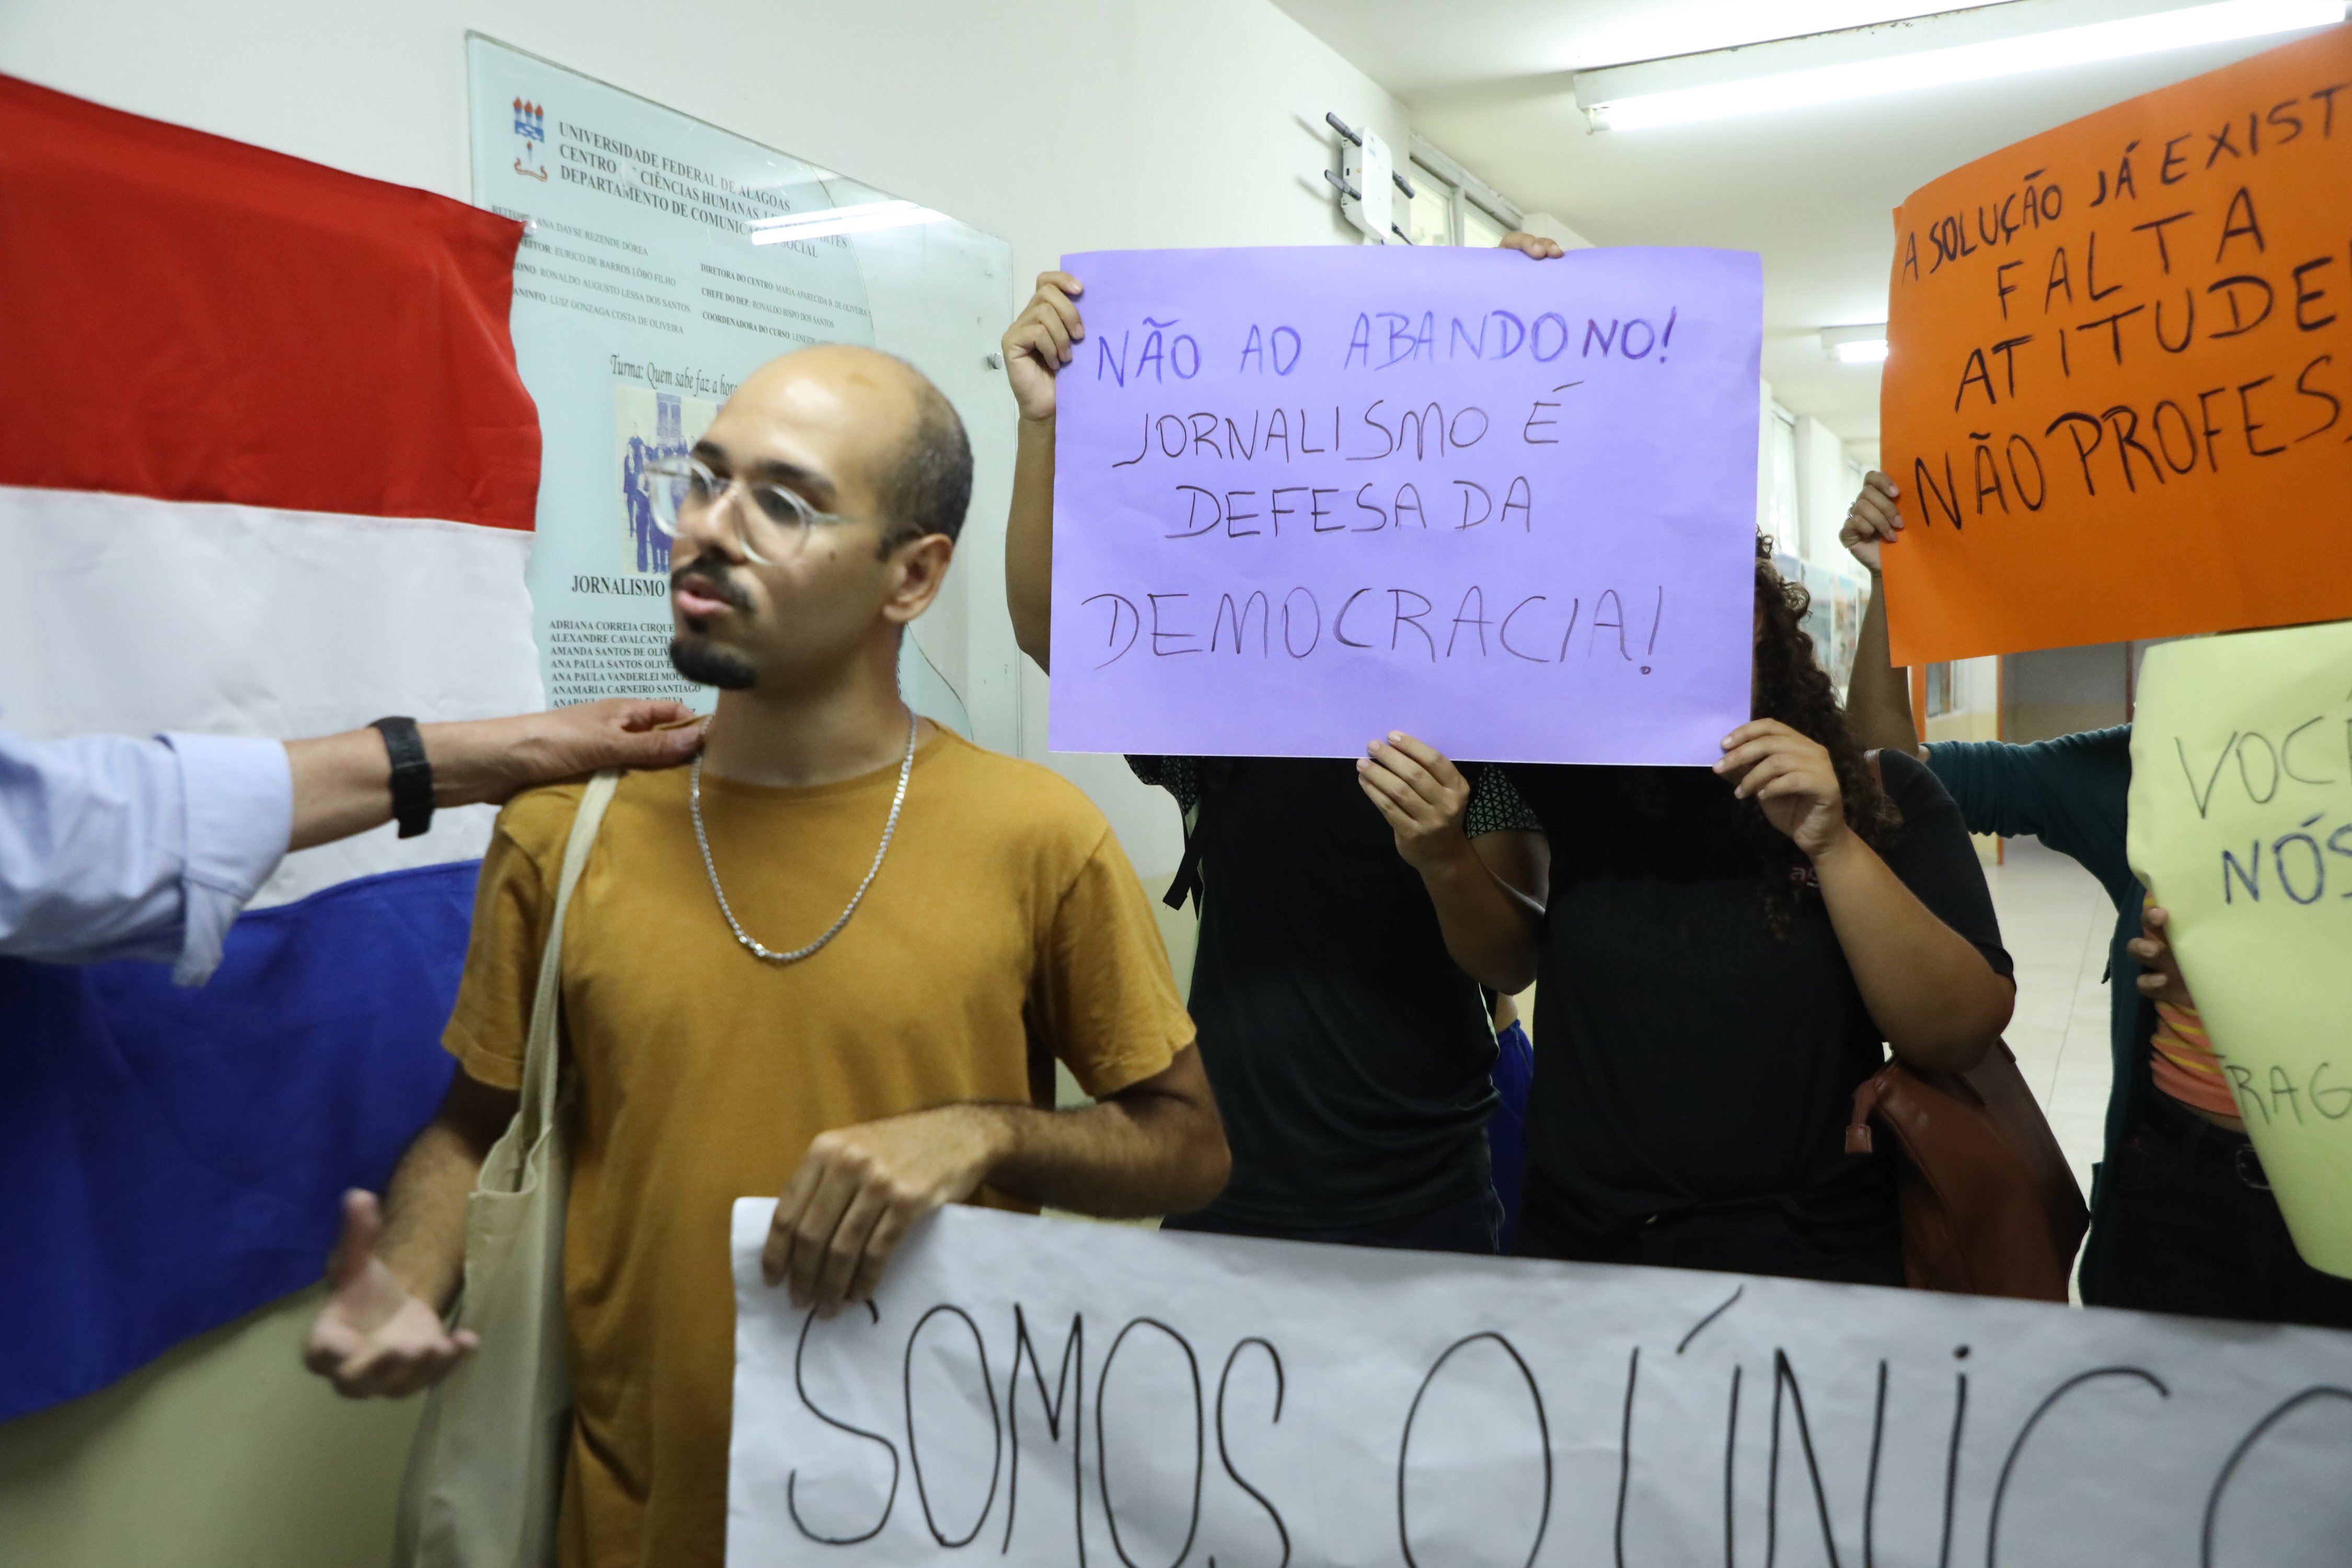 UNIVERSIDADE FEDERAL DE ALAGOAS
CENTRO DE CIÊNCIAS HUMANAS, ARTES
DEPARTAMENTO DE COMUNICAÇÃO SOCIAL
ANA DAYSE REZENDE DÓREA
EURICO DE BARROS LÔBO FILHO
RONALDO AUGUSTO LESSA DOS SANTOS
LUIZ GONZAGA COSTA DE OLIVEIRA
DIRETORA DO CENTRO: MARIA APARECIDA B. DE OLIVEIRA
CHEFE DO DEP.: RONALDO BISPO DOS SANTOS
COORDENADORA DO CURSO:
Turma: Quem sabe faz a hora
JORNALISMO
ADRIANA CORREIA
ALEXANDRE CAVALCANTI
AMANDA SANTOS DE
ANA PAULA SANTOS
ANA PAULA VANDERLEI
ANAMARIA CARNEIRO SANTIAGO
NÃO AO ABANDONO!
JORNALISMO É
DEFESA DA
DEMOCRACIA!
A SOLUÇÃO JÁ EXIST
FALTA
ATITUDE
NÃO PROFES
VOC
NÓS
RAG
SOMOS O ÚNICO